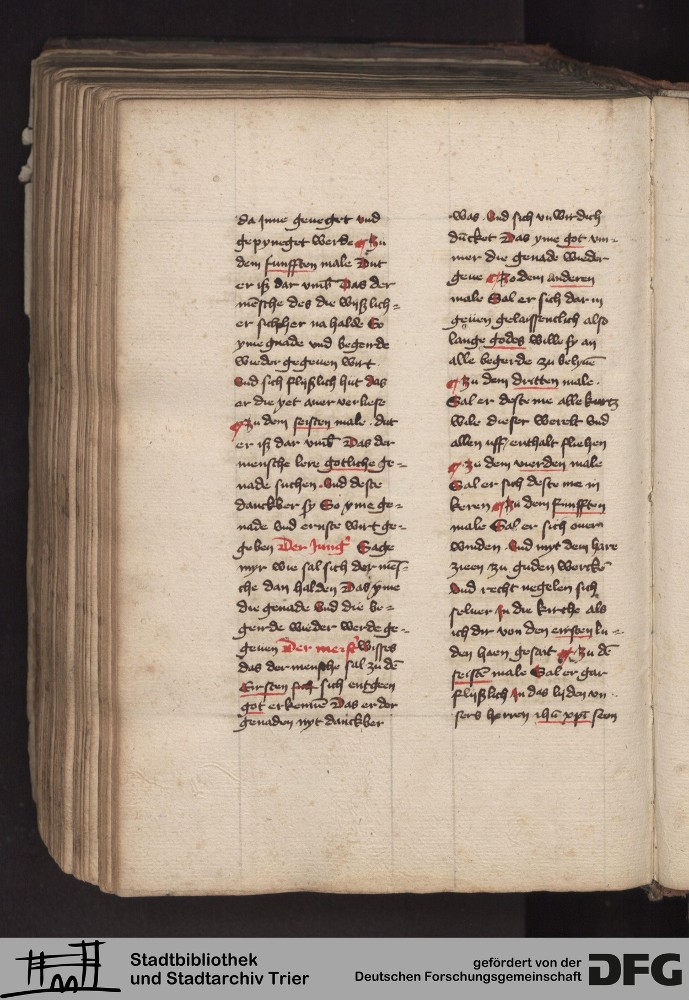 da jnne geneget vnd
gepyneget werde Zu
dem funfften male Dut
er iß dar vmb Das der
mensche des die wißlich=
er sich her na halde So
yme gnade vnd begerde
wieder gegeuen wirt
Vnd sich flyßlich hut das
er die yet auer verliese
Zu dem seisten male dut
er iß dar vmb Das der
mensche lere gotliche ge=
nade suchen Vnd deste
danckber sy So yme ge=
nade vnd ernste wirt ge=
geben Der Jung' Sage
myr wie sal sich der mēs=
che dan halden Das yme
die genade vnd die be=
gerde wieder werde ge=
geuen Der meist' Wisses
das der mensche sal zu dē
Eirsten sich sich entgeen
got erkennē Das er der
genaden nyt danckber
was Vnd sich vnwirdich
dūcket Das yme got vm=
mer die genade wieder
geue Zo dem anderen
male Sal er sich dar in
geuen gelaissenclich also
lange godes wille sy an
alle begerde zu belyuē
Zu dem dritten male
Sal er deste me alle kurtz
wile dieser werelt vnd
allen vff enthalt fliehen
Zu dem vierden male
Sal er sich deste me in
keren Zu dem funfften
male Sal er sich ouer
winden Vnd myt dem hare
zieen zu guden wercken
Vnd recht negelen sich
seluer Jn die kirche als
ich dir von den eirsten lu=
den haen gesait Zu dē
seisten male Sal er gar
flyßlich Jn das lyden vn
sers herren ihū xpī seen
Stadtbibliothek
und Stadtarchiv Trier
gefördert von der
Deutschen Forschungsgemeinschaft
DFG